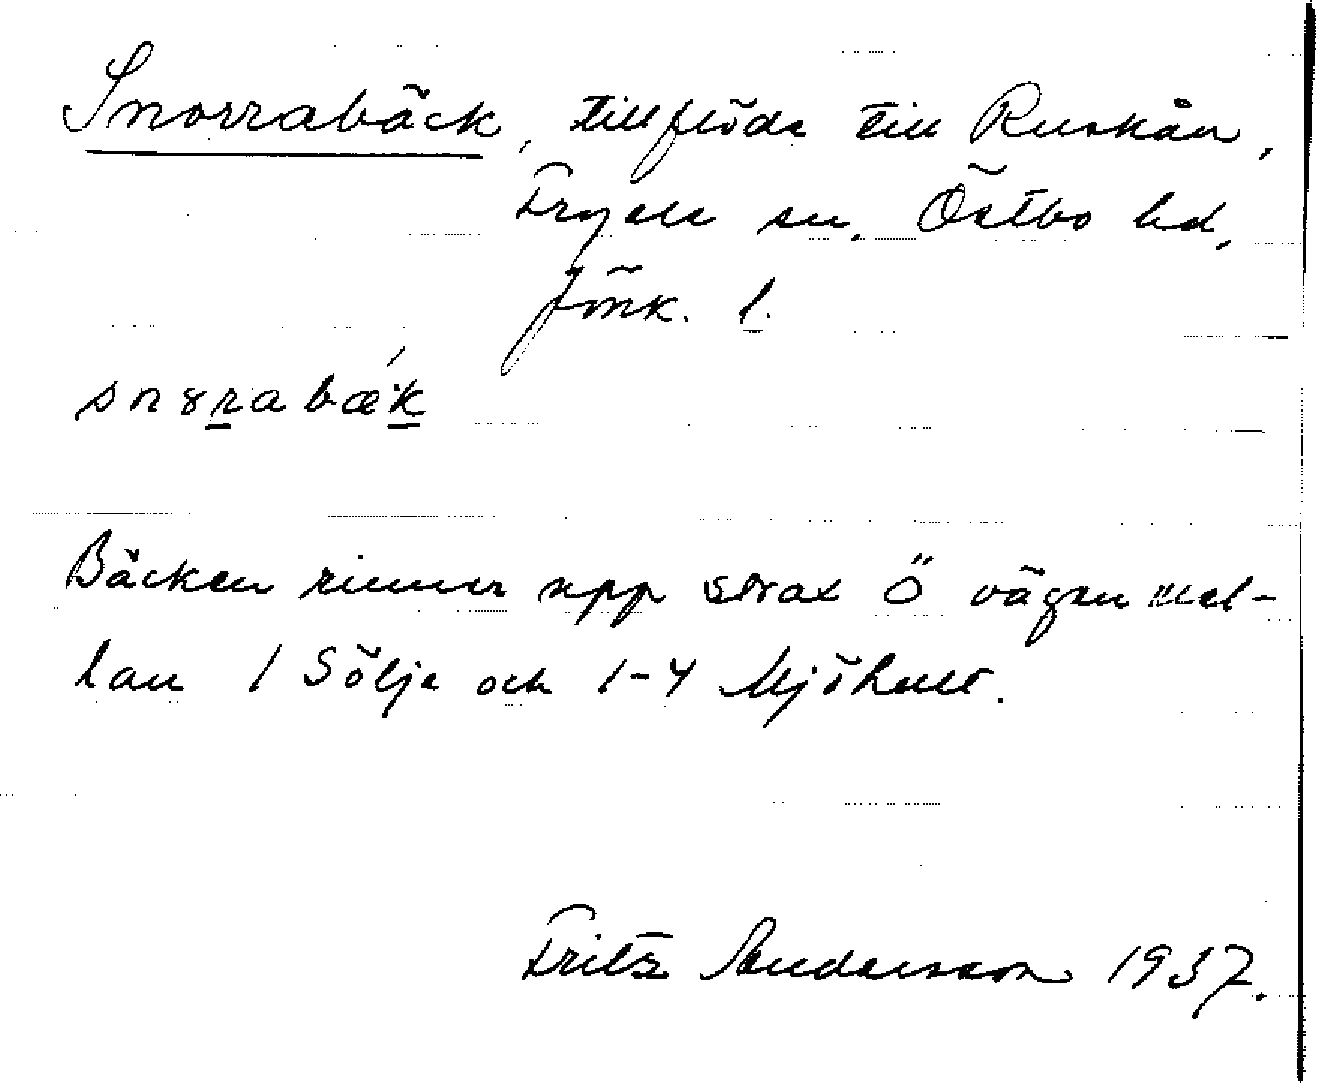 Snorrabäck, tillflöde till Ruskån,
Fryele sn. Östbo hd,
Jönk. l.
snɤrabæ´k
Bäcken rinner upp strax Ö vägen mel-
lan 1 Sölje och 1-4 Mjöhult.
Fritz Andersson 1937.